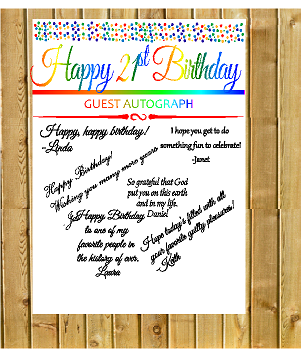 Happy 21st Birthday
GUEST AUTOGRAPH
Happy, happy birthday!
-Linda
I hope you get to do
something fun to celebrate!
-Janet
Happy Birthday!
Wishing you many more years
So grateful that God
put you on this earth
and in my life.
Daniel
Happy Birthday
to one of my
favorite people in
the history of ever.
Laura
Hope today's filled with all
your favorite guilty pleasures!